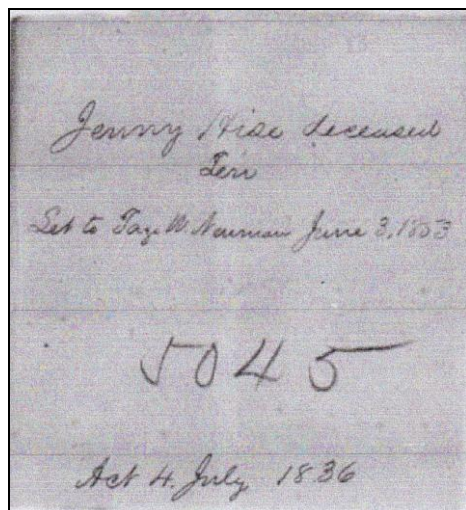 Jenny Hise deceased
Let to W. Newman June 3, 1853
5045
Act 4. July 1836